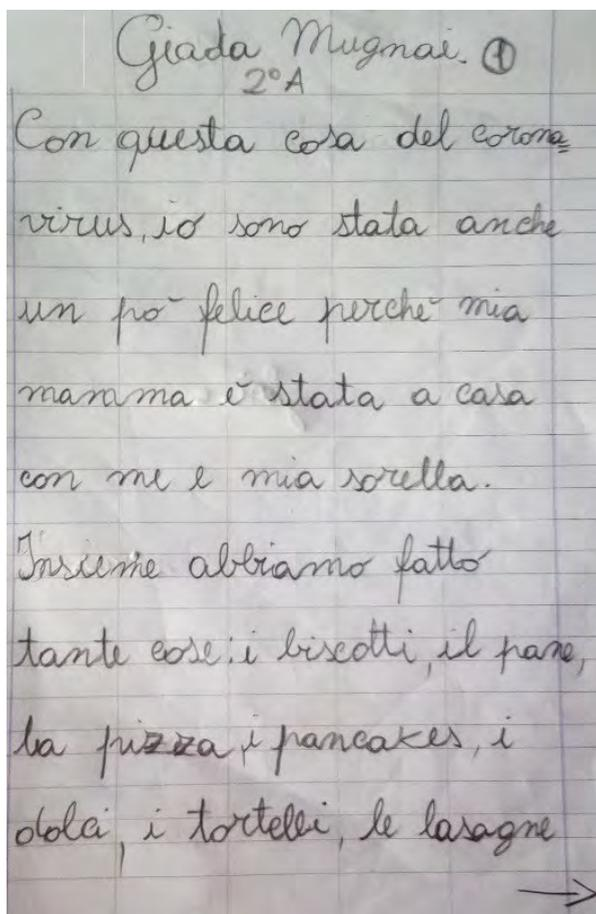 Giada Mugnai. ①
2°A
Con questa cosa del corona=
virus, io sono stata anche
un po' felice perché mia
mamma è stata a casa
con me e mia sorella.
Insieme abbiamo fatto
tante cose: i biscotti, il pane,
la pizza, i pancakes, i
dolci, i tortelli, le lasagne
→